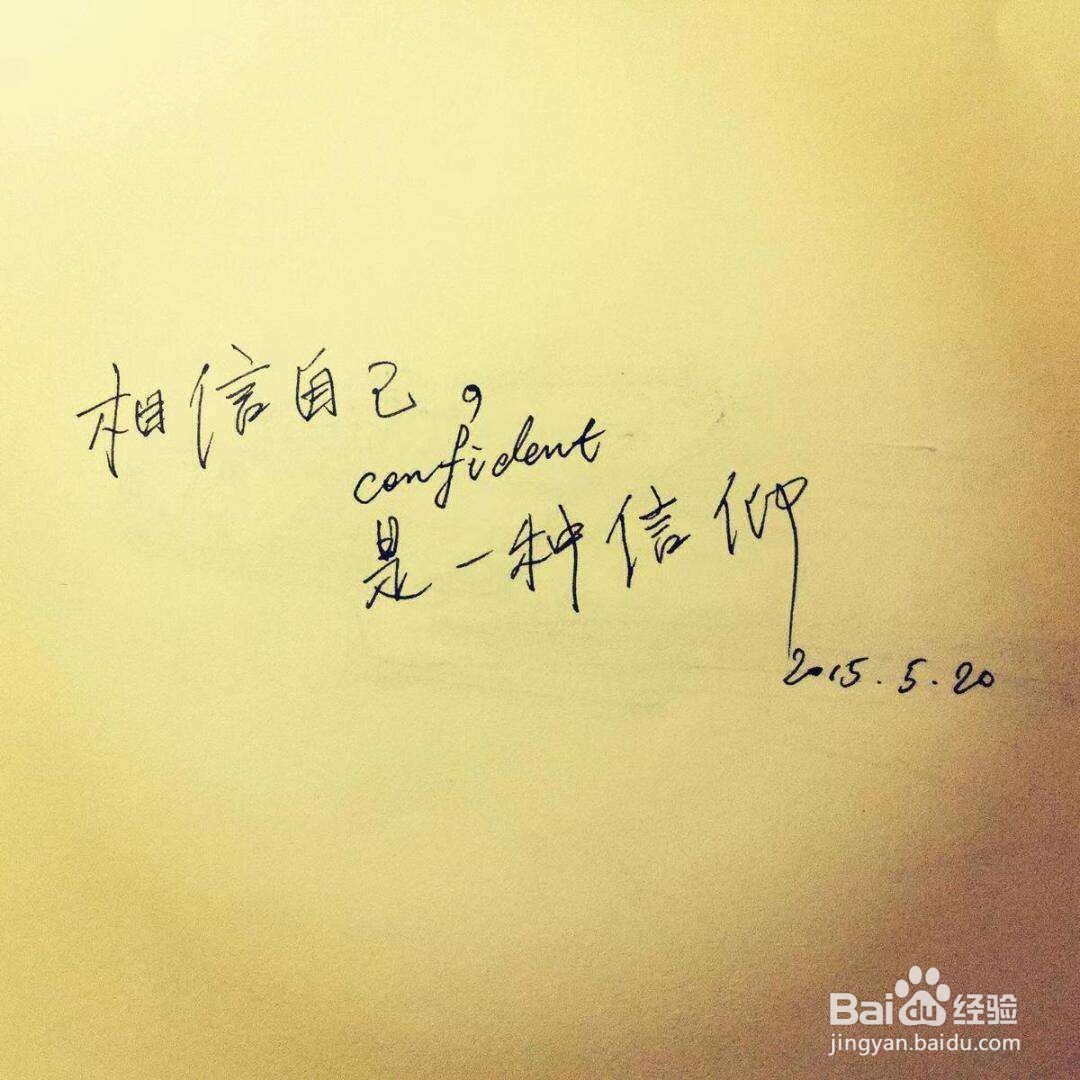 相信自己，
confident
是一种信仰
2015.5.20
Baidu经验
jingyan.baidu.com